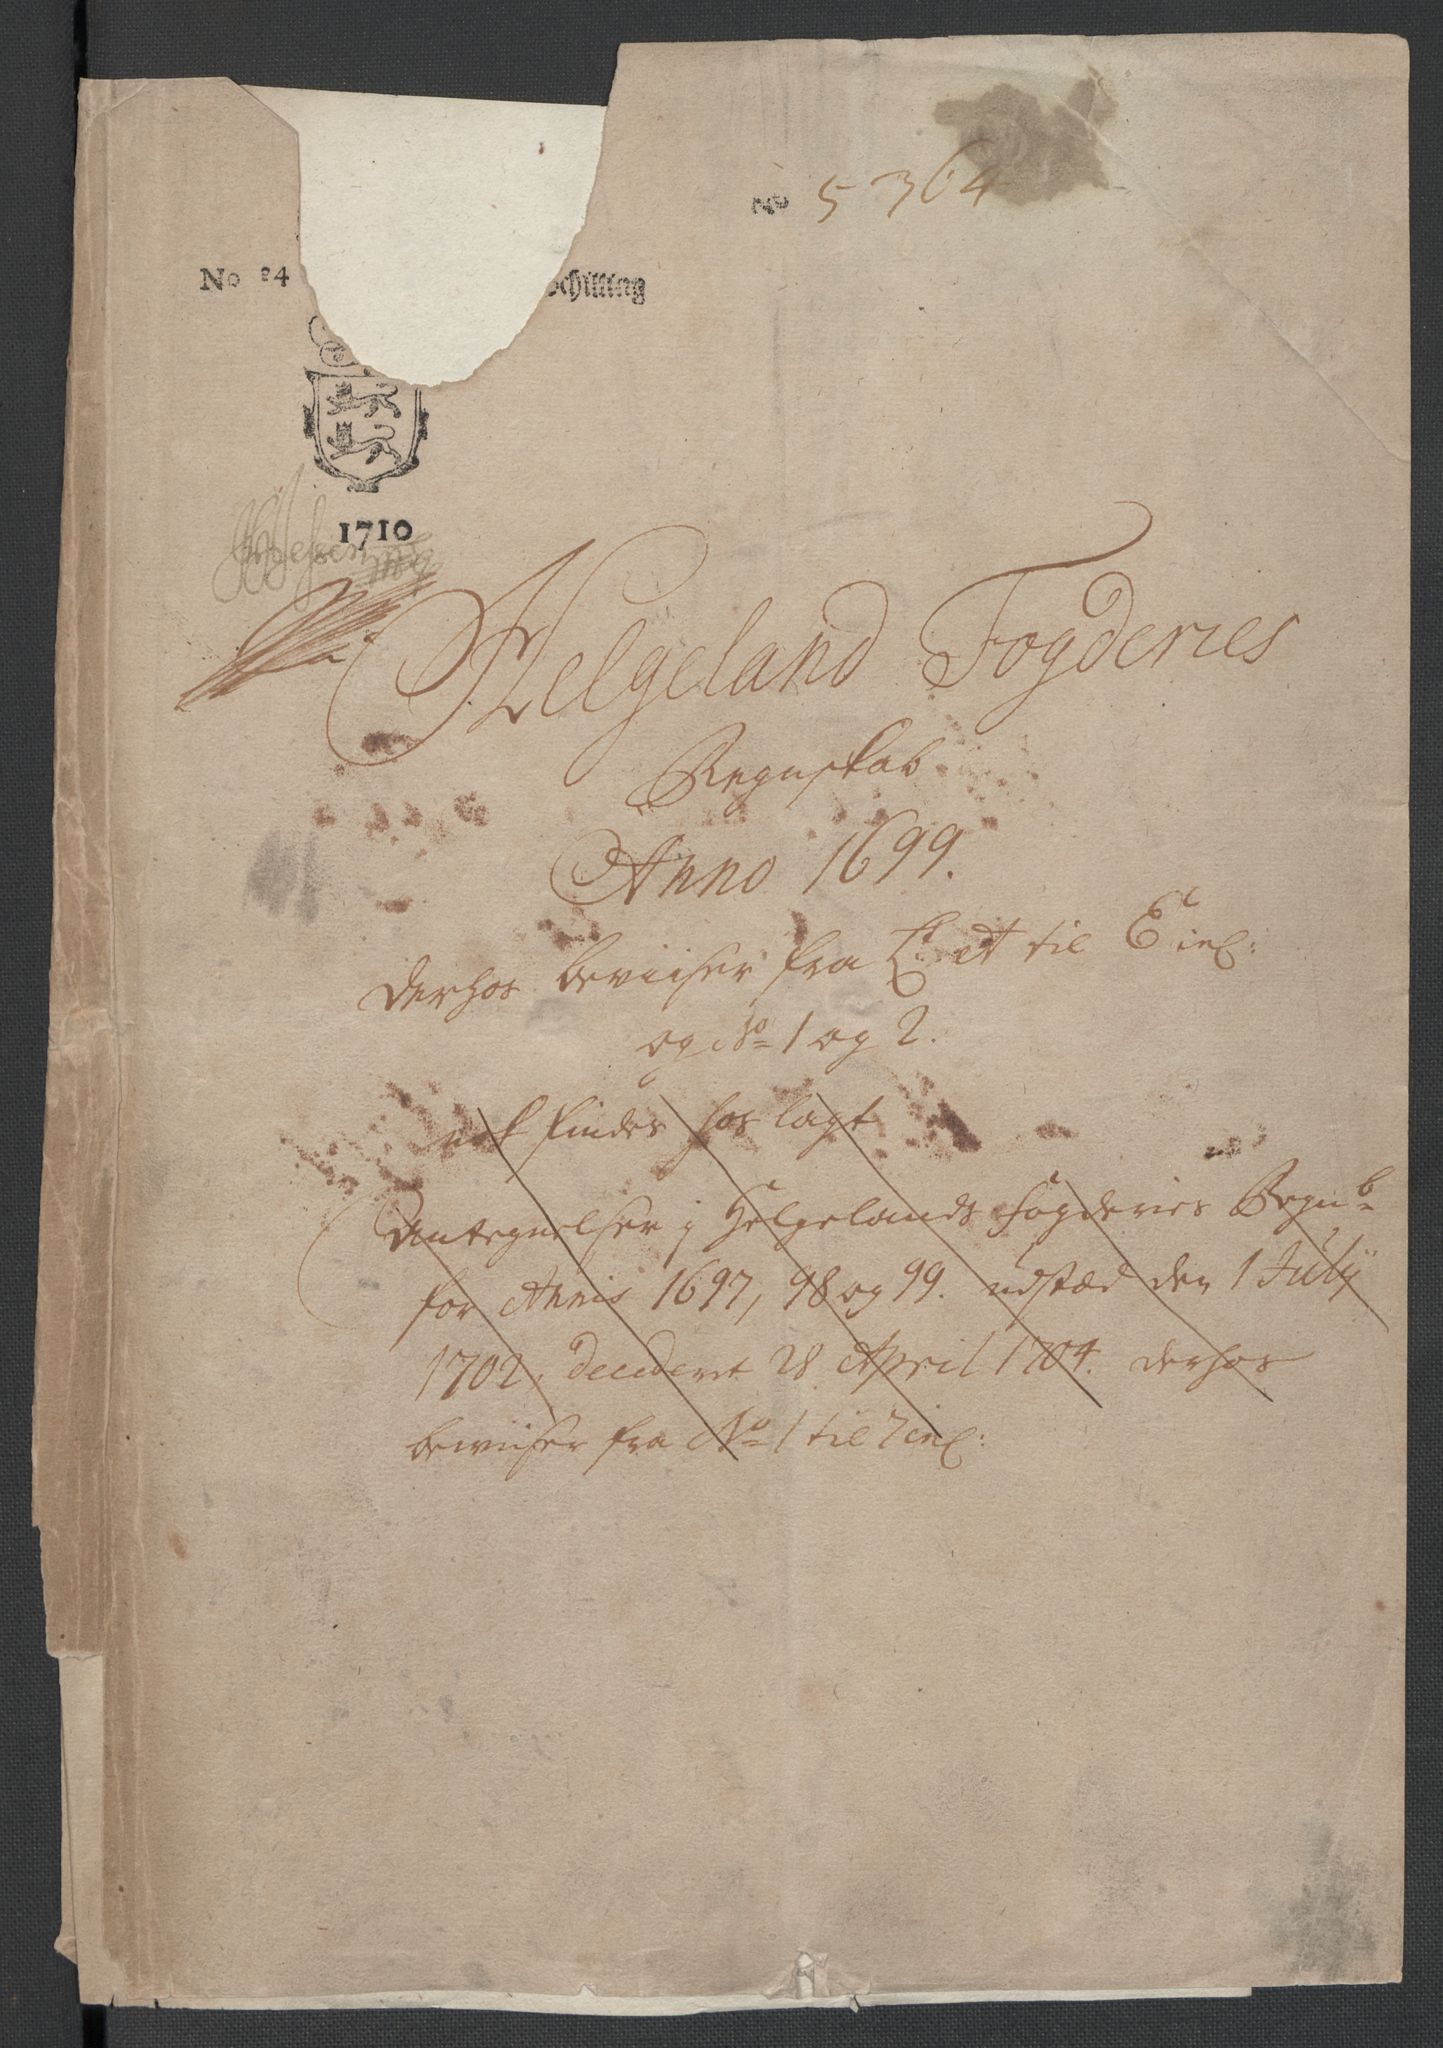 No 5364
No 24 Schilling
1710
Helgeland Fogderies
Regnskab
Anno 1699.
derhos beviiser fra L: A til E incl:
og No 1 og 2.
nock findes hos lagt
Antegnelser i Helgelands Fogderies Regnb
for Annis 1697, 98 og 99. udstæd den 1 July
1702, decideret 28 April 1704. derhos
beviiser fra No 1 til 7 incl: